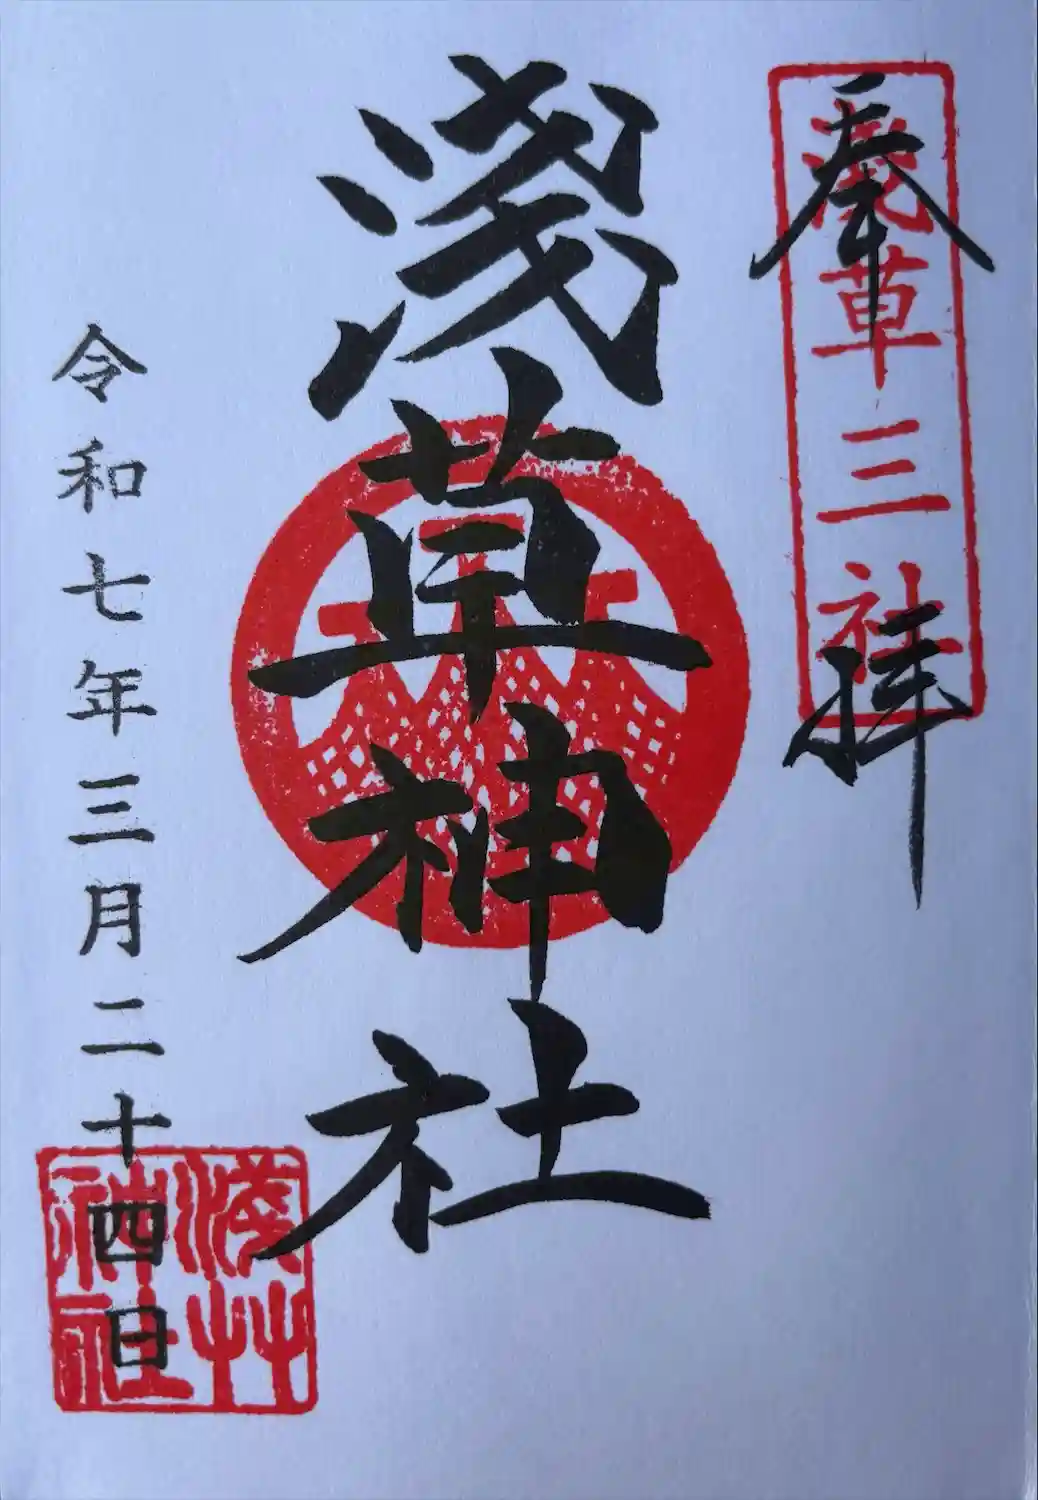 奉拝
浅草三社
浅草神社
令和七年三月二十四日
浅草神社